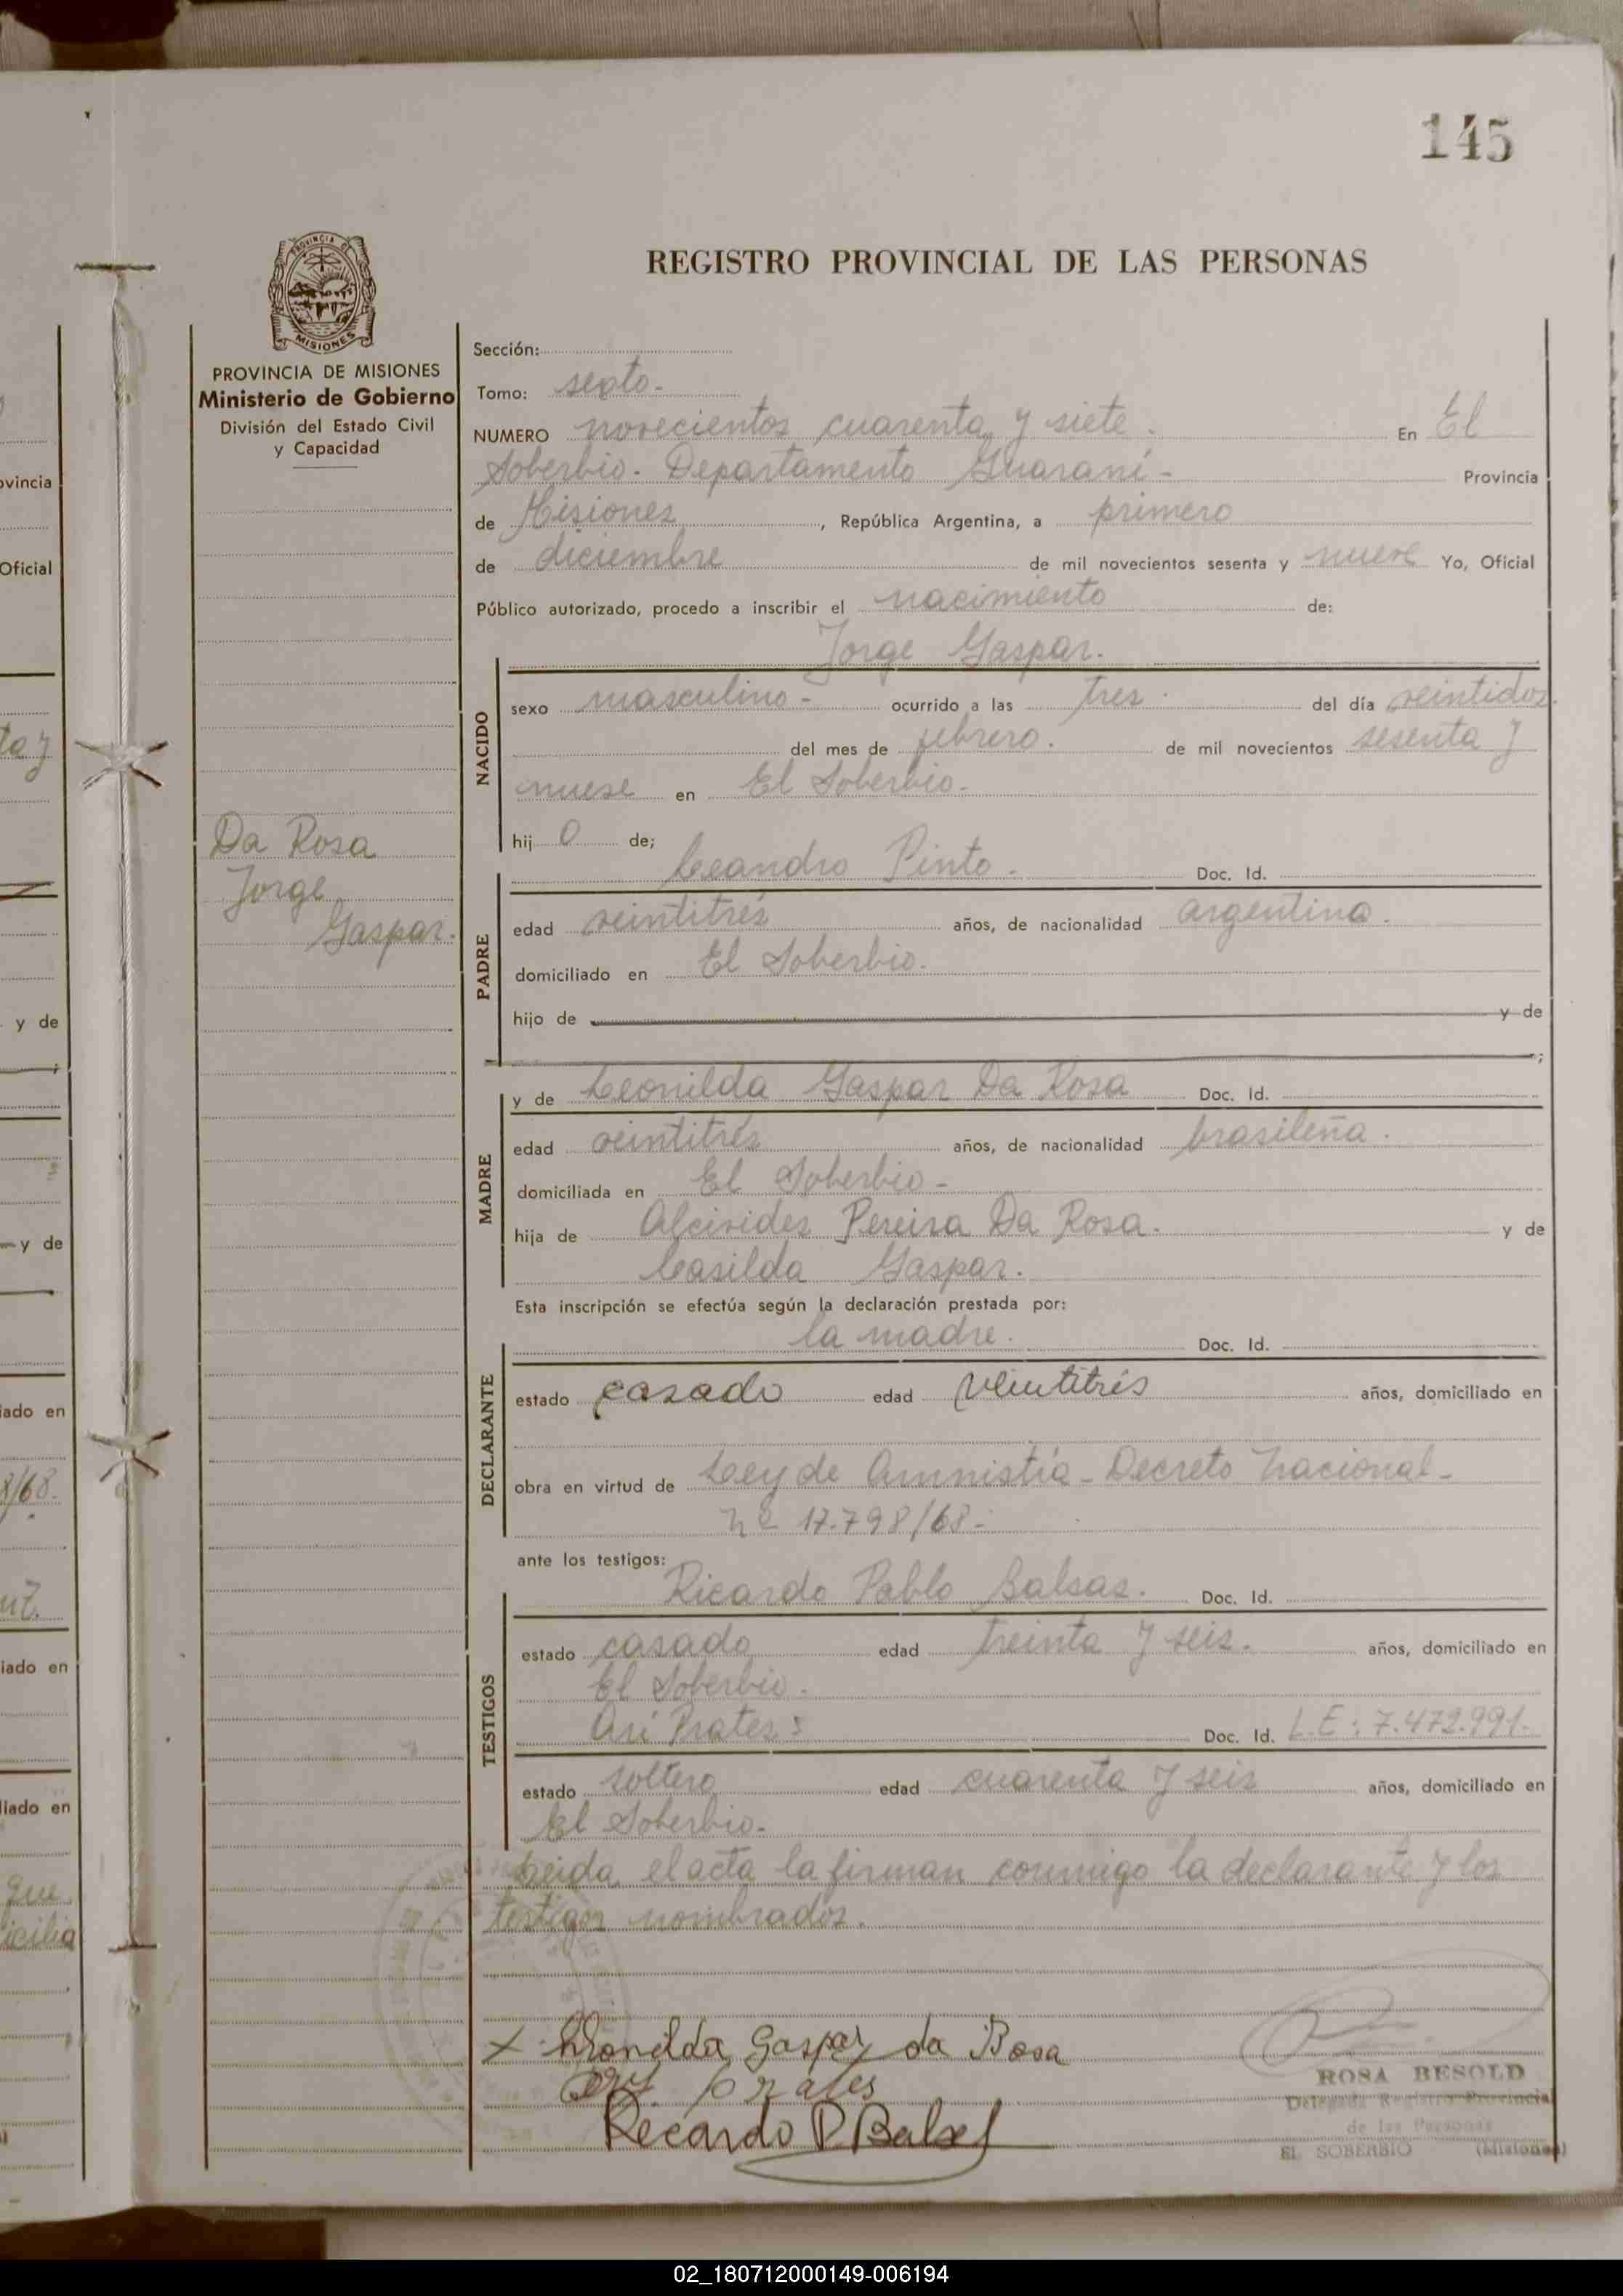 145
PROVINCIA DE
MISIONES
REGISTRO PROVINCIAL DE LAS PERSONAS
PROVINCIA DE MISIONES
Ministerio de Gobierno
División del Estado Civil
y Capacidad
Da Rosa
Jorge
Gaspar.
Sección:
Tomo: sexto.
NUMERO novecientos cuarenta y siete. En El
Soberbio. Departamento Guaraní - Provincia
de Misiones, República Argentina, a primero
de diciembre de mil novecientos sesenta y nueve Yo, Oficial
Público autorizado, procedo a inscribir el nacimiento de:
Jorge Gaspar.
NACIDO
sexo masculino - ocurrido a las tres. del día veintidos.
del mes de febrero. de mil novecientos sesenta y
nueve en El Soberbio.
hij o de;
PADRE
Leandro Pinto. Doc. Id.
edad veintitrés años, de nacionalidad argentina.
domiciliado en El Soberbio.
hijo de y de
;
MADRE
y de Leonilda Gaspar Da Rosa Doc. Id.
edad veintitrés años, de nacionalidad brasileña.
domiciliada en El Soberbio -
hija de Alcivides Pereira Da Rosa. y de
Casilda Gaspar.
Esta inscripción se efectúa según la declaración prestada por:
DECLARANTE
la madre. Doc. Id.
estado casado edad veintitrés años, domiciliado en
obra en virtud de Ley de Amnistía - Decreto Nacional -
Nº 17.798/68 -
ante los testigos:
TESTIGOS
Ricardo Pablo Balsas. Doc. Id.
estado casado edad treinta y seis. años, domiciliado en
El Soberbio.
Ari Prates: Doc. Id. L.E: 7.472.991.
estado soltero edad cuarenta y seis años, domiciliado en
El Soberbio.
Leida el acta la firman conmigo la declarante y los
testigos nombrados.
x Leonilda Gaspar da Rosa
Ary Prates
Recardo P. Balsas
ROSA BESOLD
Delegada Registro Provincial
de las Personas
EL SOBERBIO (Misiones)
vincia
Oficial
ta y
y de
y de
iado en
8/68.
iado en
liado en
que
icilia
02_180712000149-006194